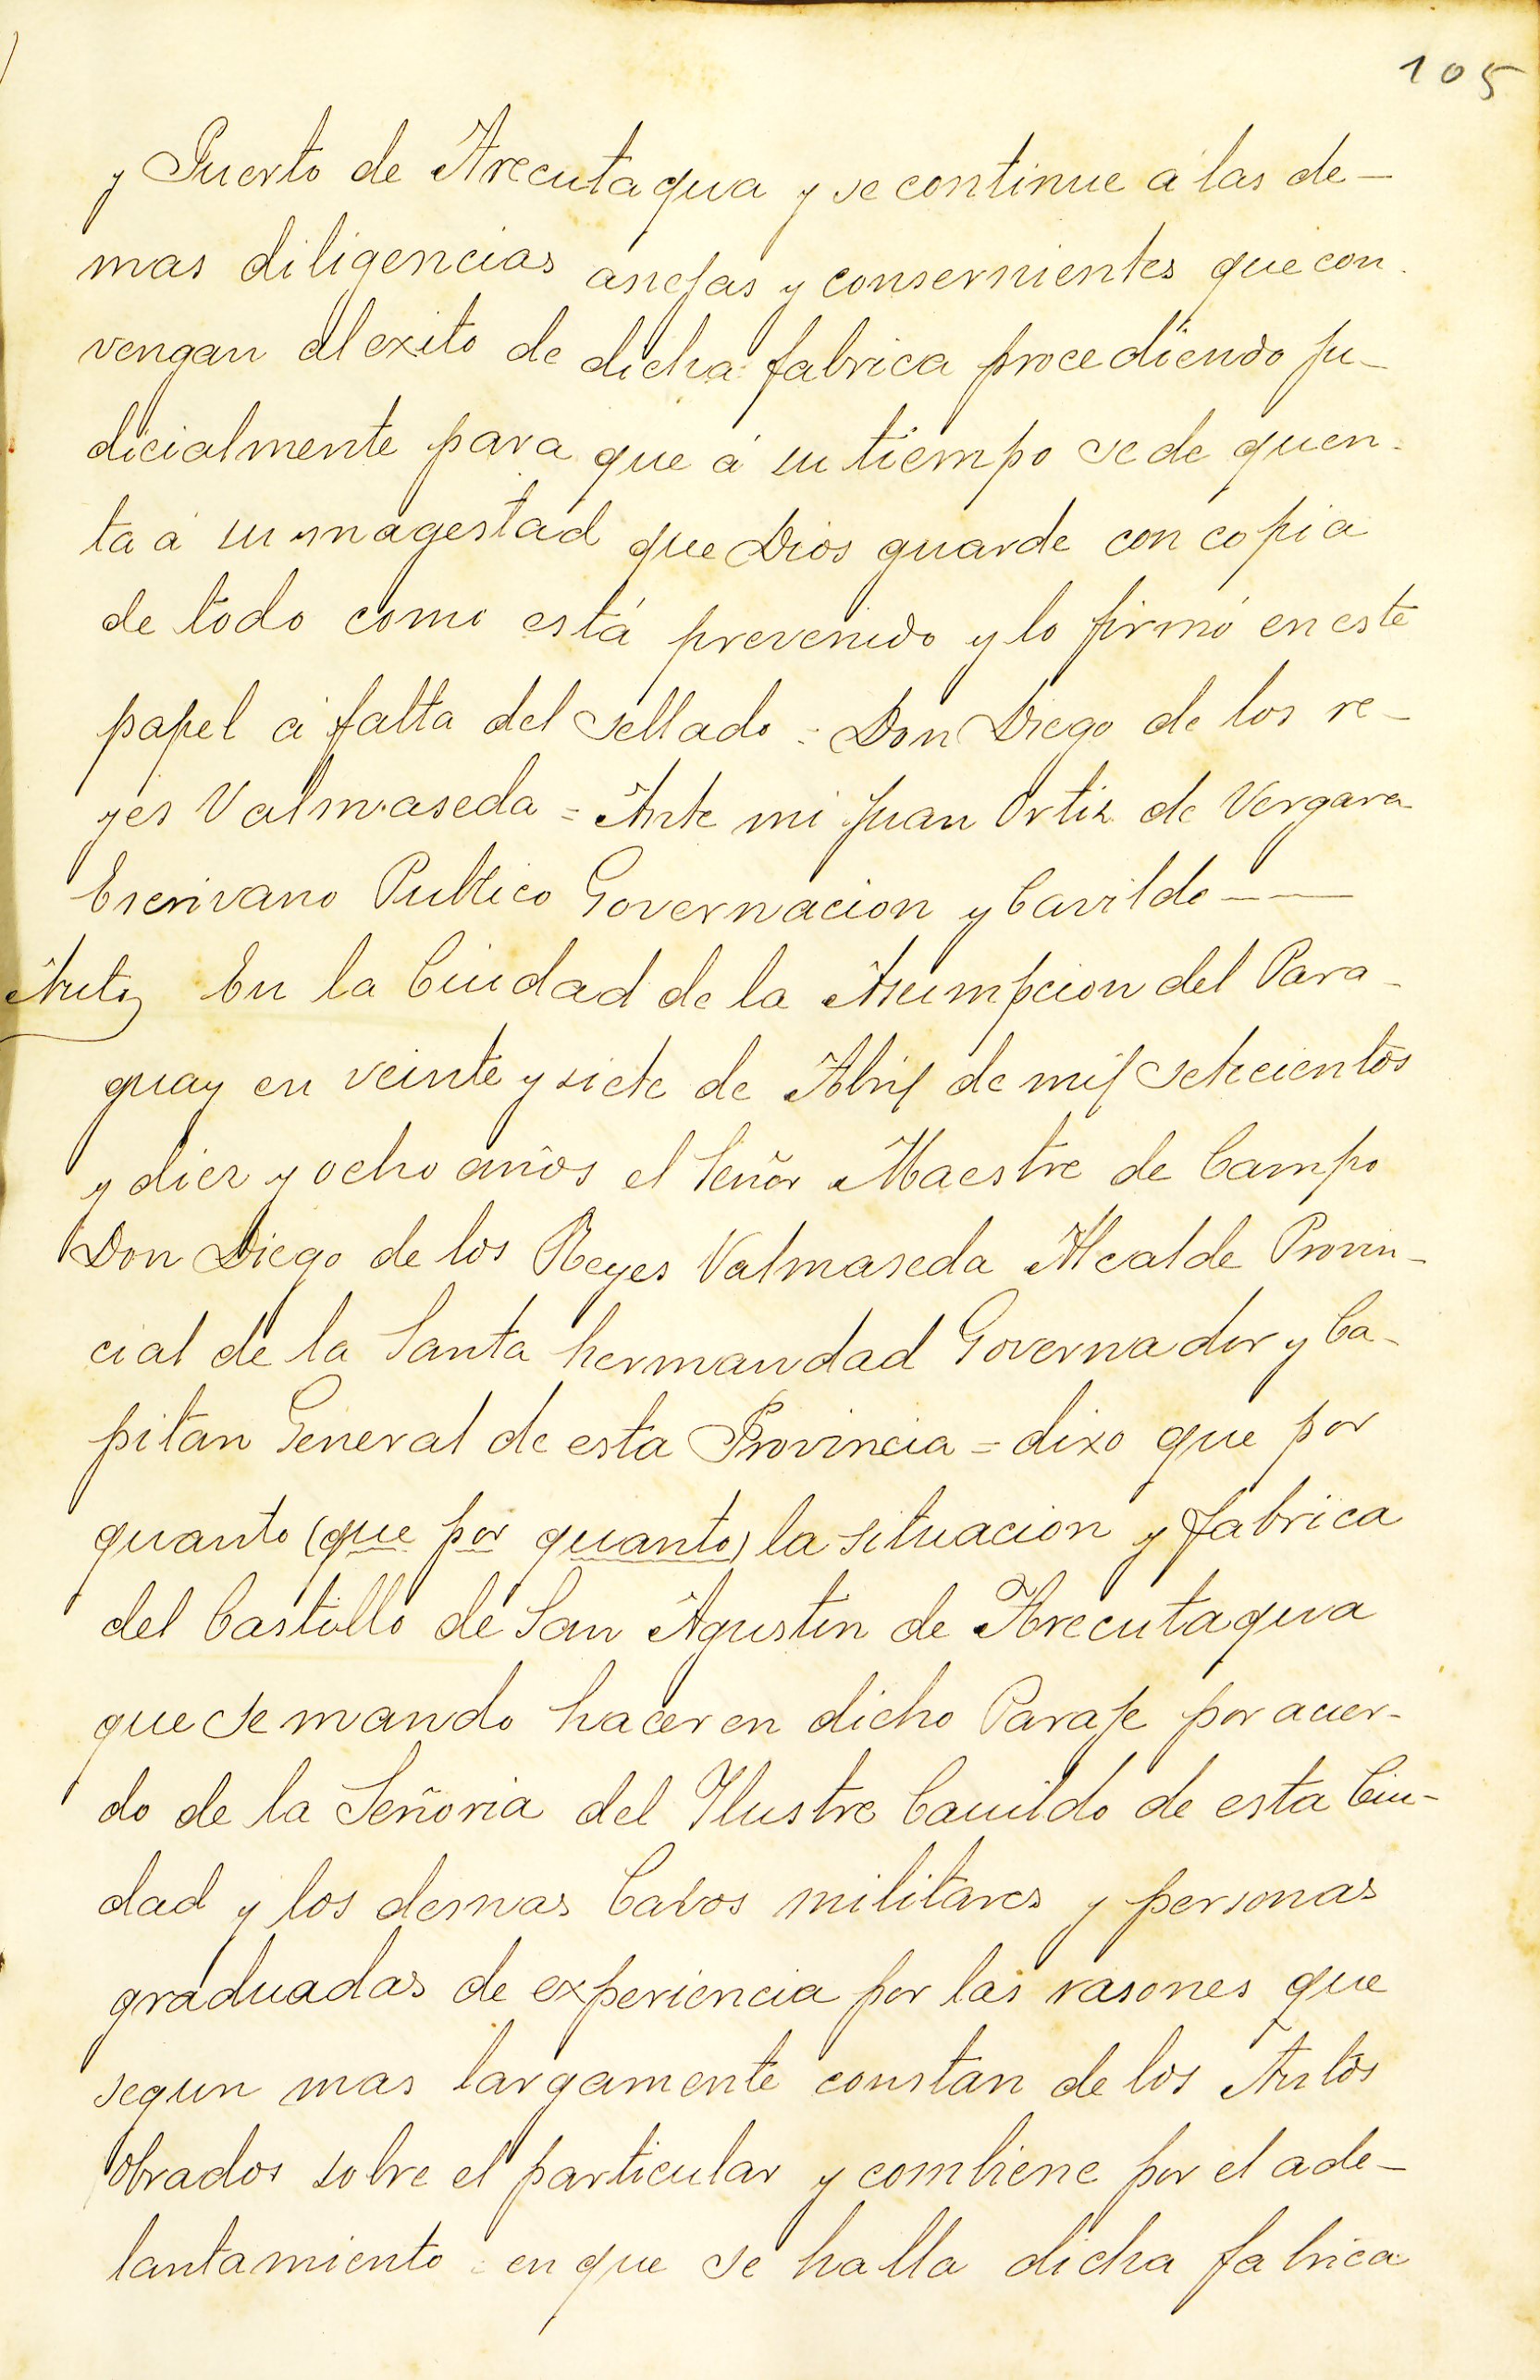 105
y Puerto de Arecutaqua y se continue á las de-
mas diligencias anejas y consernientes que con-
vengan al exito de dicha fabrica procediendo ju-
dicialmente para que á su tiempo se de quen-
ta á su magestad que Dios guarde con copia
de todo como está prevenido y lo firmó en este
papel á falta del sellado = Don Diego de los re-
yes Valmaseda = Ante mi Juan Ortiz de Vergara
Escrivano Publico Governacion y Cavildo ——
Auto En la Ciudad de la Asumpcion del Para-
guay en veinte y siete de Abril de mil setecientos
y diez y ocho años el Señor Maestre de Campo
Don Diego de los Reyes Valmaseda Alcalde Provin-
cial de la Santa hermandad Governador y Ca-
pitan General de esta Provincia = dixo que por
quanto (que por quanto) la situacion y fabrica
del Castillo de San Agustin de Arecutaqua
que se mando hacer en dicho Paraje por acuer-
do de la Señoria del Ilustre Cauildo de esta Ciu-
dad y los demas Cabos militares y personas
graduadas de experiencia por las rasones que
segun mas largamente constan de los Autos
obrados sobre el particular y combiene por el ade-
lantamiento en que se halla dicha fabrica